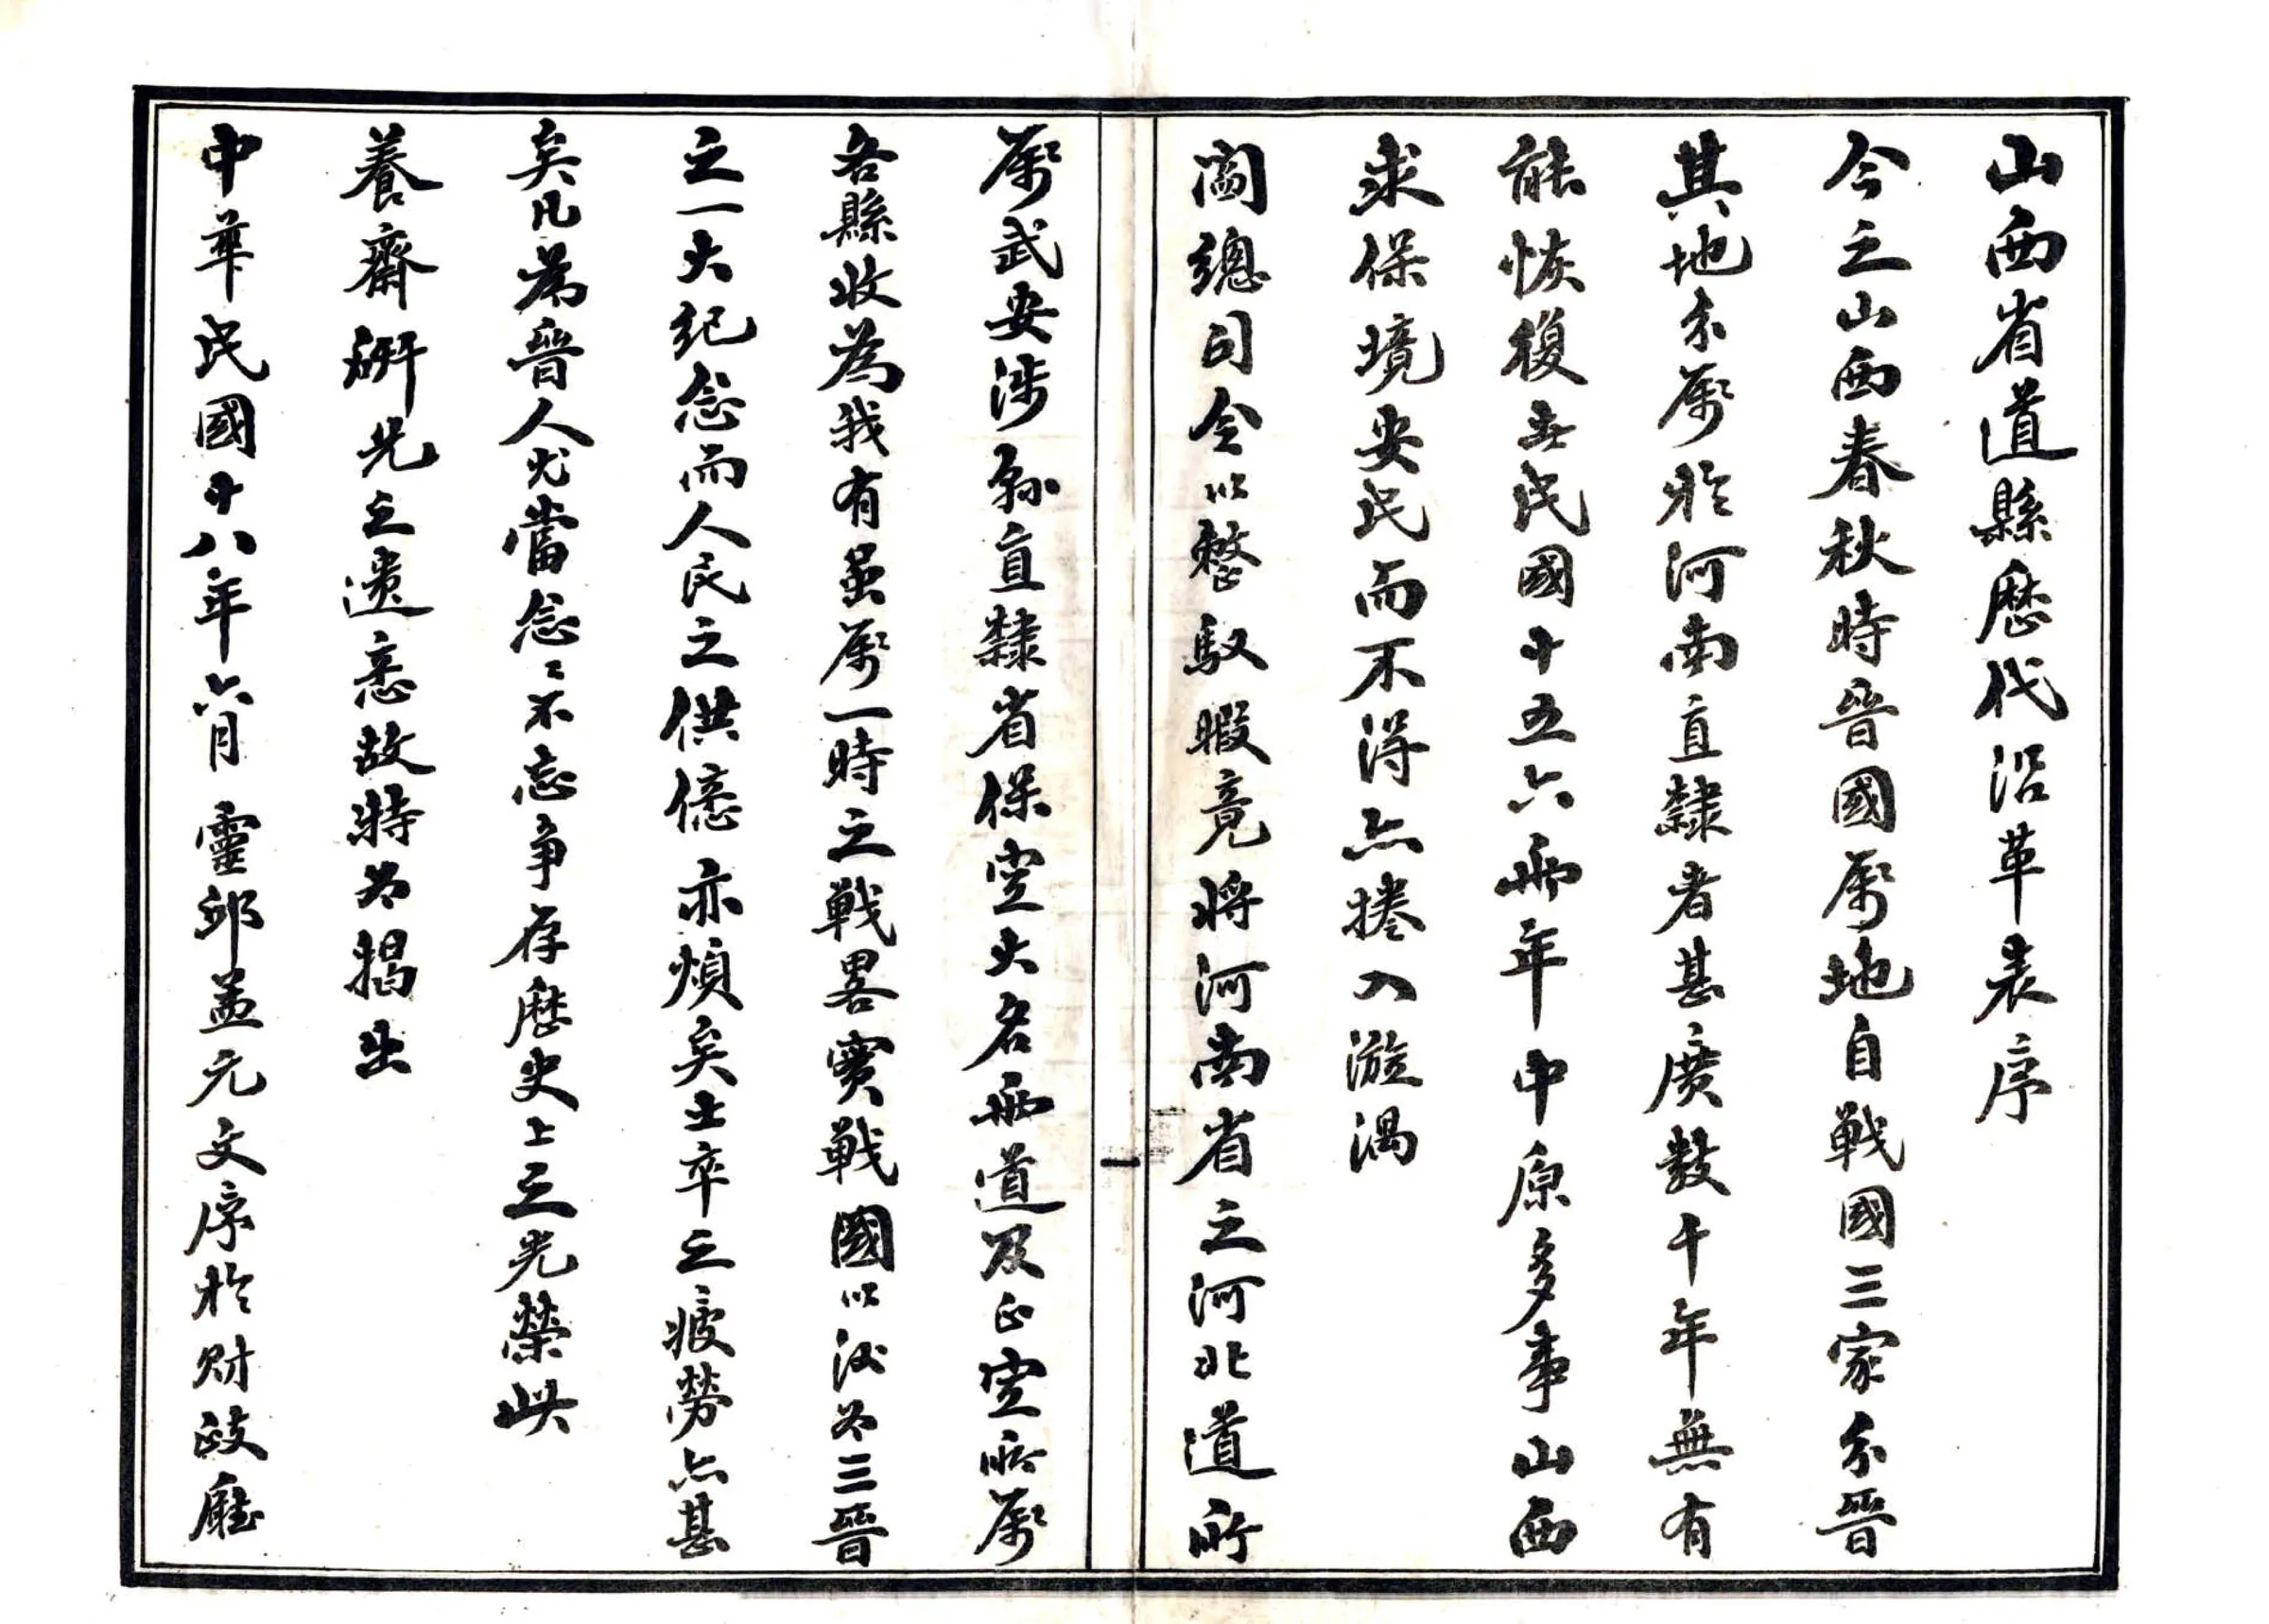 山西省道縣歷代沿革表序
今之山西春秋時晉國屬地自戰國三家分晉
其地分屬於河南直隸者甚廣數千年無有
能恢復者民國十五六兩年中原多事山西
求保境安民而不得亦捲入漩渦
閻總司令以整馭暇竟將河南省之河北道所
屬武安涉縣直隸省保定大名兩道及正定所屬
各縣收為我有虽屬一時之戰畧實戰國以後為三晉
之一大紀念而人民之供億亦煩矣士卒之疲勞亦甚
矣凡為晉人尤當念〻不忘爭存歷史上之光榮此
養齋研兄之遺意故特為揭出
中華民國十八年六月靈邱孟元文序於財政廳